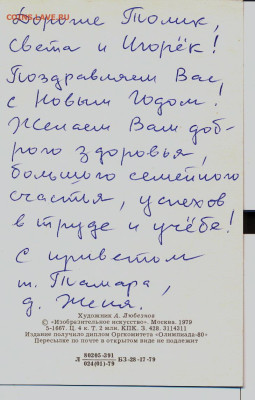 COINS.LAVE.RU
Дорогие Толик,
Света и Игорёк!
Поздравляем Вас
с Новым Годом!
Желаем Вам доб-
рого здоровья,
большого семейного
счастья, успехов
в труде и учёбе!
С приветом
т. Тамара,
д. Женя.
Художник А. Любезнов
© «Изобразительное искусство». Москва. 1979
5-1667. Ц. 4 к. Т. 2 млн. КПК. З. 428. 3114311
Издание получило диплом Оргкомитета «Олимпиада-80»
Пересылке по почте в открытом виде не подлежит
Л 80205-391 БЗ-28-17-79
024(01)-79